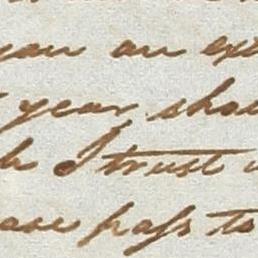 you an ex
year shal
I trust
ase paſs to